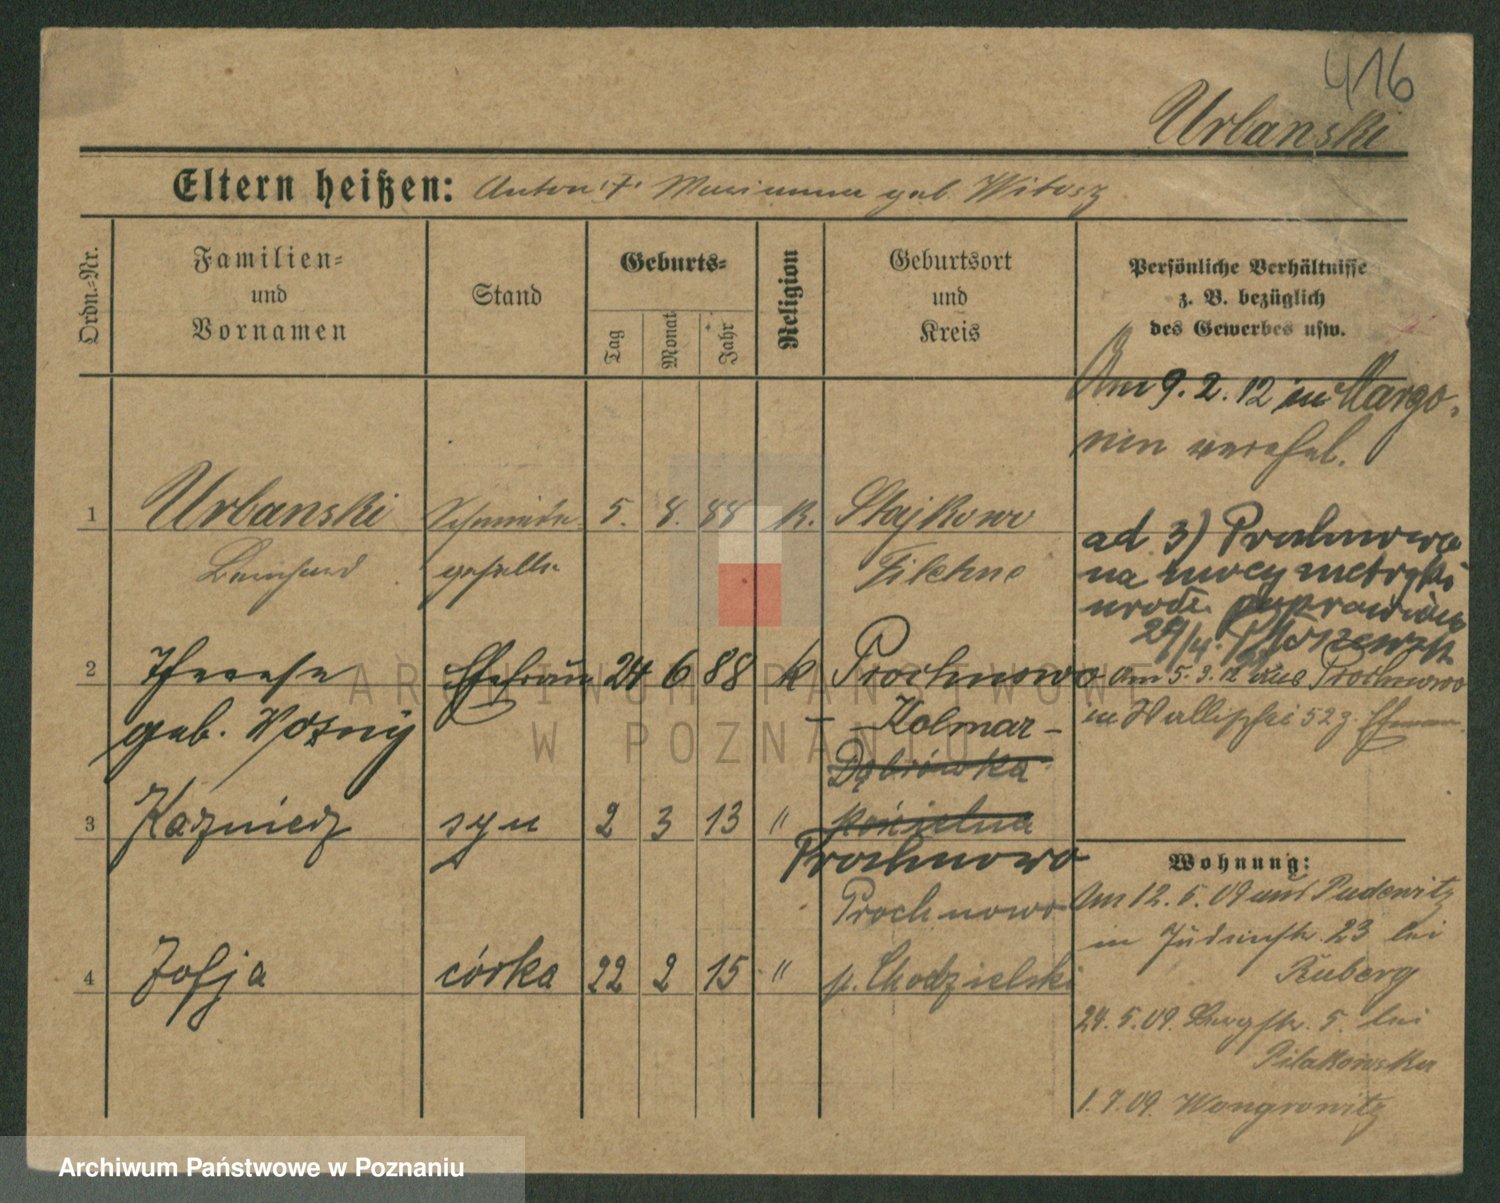 416
Urbanski
Eltern heißen: Anton † Marianna geb. Witosz
Ordn.=Nr.
Familien=
und
Vornamen
Stand
Geburts=
Tag
Monat
Jahr
Religion
Geburtsort
und
Kreis
Persönliche Verhältnisse
z. B. bezüglich
des Gewerbes usw.
Am 9. 2. 12 in Margo-
nin verehel.
1 Urbanski Schmiede- 5. 8. 88 K. Stajkowo
Bernhard geselle Filehne
ad 3) Prochnowo
na mocy metryki
urodz. poprawiono
29/4.
2 Therese Ehefrau 24 6 88 k Prochnowo
geb. Wozny - Kolmar -
Am 5. 3. 12 aus Prochnowo
in Wallischei 52 z. Ehemann.
Dąbrówka
3 Kazmierz syn 2 3 13 " kościelna
Prochnowo
Prochnowo
4 Zofja córka 22 2 15 " p. Chodzielski
Wohnung:
Am 12. 5. 09 aus Pudewitz
in Judenstr. 23 bei
Ruberg
24. 5. 09. Bergstr. 5. bei
Pilakowska
1. 7. 09. Wongrowitz
ARCHIWUM PAŃSTWOWE
W POZNANIU
Archiwum Państwowe w Poznaniu